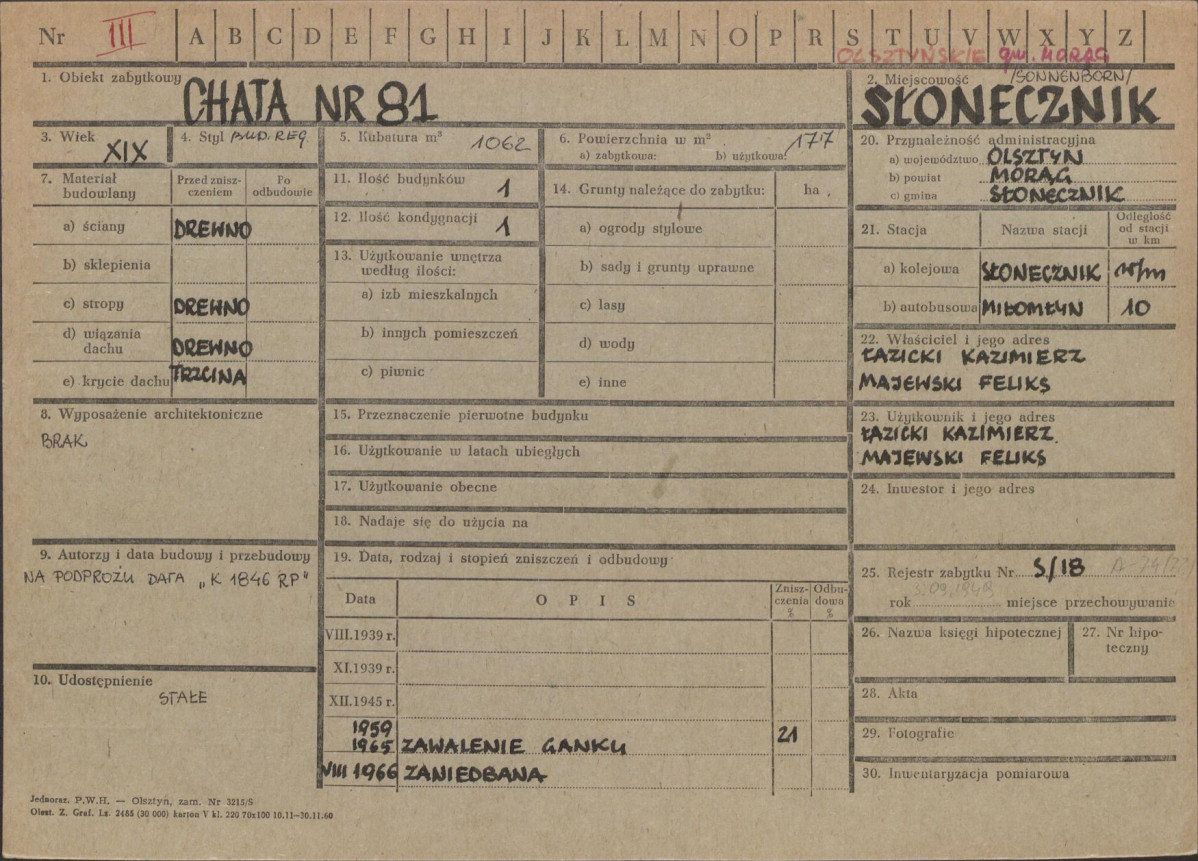 Nr III A B C D E F G H I J K L M N O P R S T U V W X Y Z
OLSZTYŃSKIE gm. MORĄG
1. Obiekt zabytkowy
CHATA NR 81
2. Miejscowość /SONNENBORN/
SŁONECZNIK
3. Wiek XIX
4. Styl BUD. REG
5. Kubatura m³ 1062
6. Powierzchnia w m² 177
a) zabytkowa: b) użytkowa:
7. Materiał budowlany
Przed zniszczeniem
Po odbudowie
a) ściany DREWNO
b) sklepienia
c) stropy DREWNO
d) wiązania dachu DREWNO
e) krycie dachu TRZCINA
8. Wyposażenie architektoniczne
BRAK
9. Autorzy i data budowy i przebudowy
NA PODPROŻU DATA „K 1846 RP"
10. Udostępnienie
STAŁE
11. Ilość budynków 1
12. Ilość kondygnacji 1
13. Użytkowanie wnętrza
według ilości:
a) izb mieszkalnych
b) innych pomieszczeń
c) piwnic
14. Grunty należące do zabytku: ha
a) ogrody stylowe
b) sady i grunty uprawne
c) lasy
d) wody
e) inne
15. Przeznaczenie pierwotne budynku
16. Użytkowanie w latach ubiegłych
17. Użytkowanie obecne
18. Nadaje się do użycia na
19. Data, rodzaj i stopień zniszczeń i odbudowy
Data OPIS Zniszczenia % Odbudowa %
VIII.1939 r.
XI.1939 r.
XII.1945 r.
1959
1965 ZAWALENIE GANKU 21
VIII 1966 ZANIEDBANA
20. Przynależność administracyjna
a) województwo OLSZTYN
b) powiat MORĄG
c) gmina SŁONECZNIK
21. Stacja Nazwa stacji Odległość od stacji w km
a) kolejowa SŁONECZNIK w/m
b) autobusowa MIŁOMŁYN 10
22. Właściciel i jego adres
ŁAZICKI KAZIMIERZ
MAJEWSKI FELIKS
23. Użytkownik i jego adres
ŁAZICKI KAZIMIERZ
MAJEWSKI FELIKS
24. Inwestor i jego adres
25. Rejestr zabytku Nr S/18
rok miejsce przechowywania
26. Nazwa księgi hipotecznej
27. Nr hipoteczny
28. Akta
29. Fotografie
30. Inwentaryzacja pomiarowa
Jednoraz. P.W.H. — Olsztyn, zam. Nr 3215/S
Olszt. Z. Graf. Lz. 2485 (30 000) karton V kl. 220 70x100 10.11—30.11.60